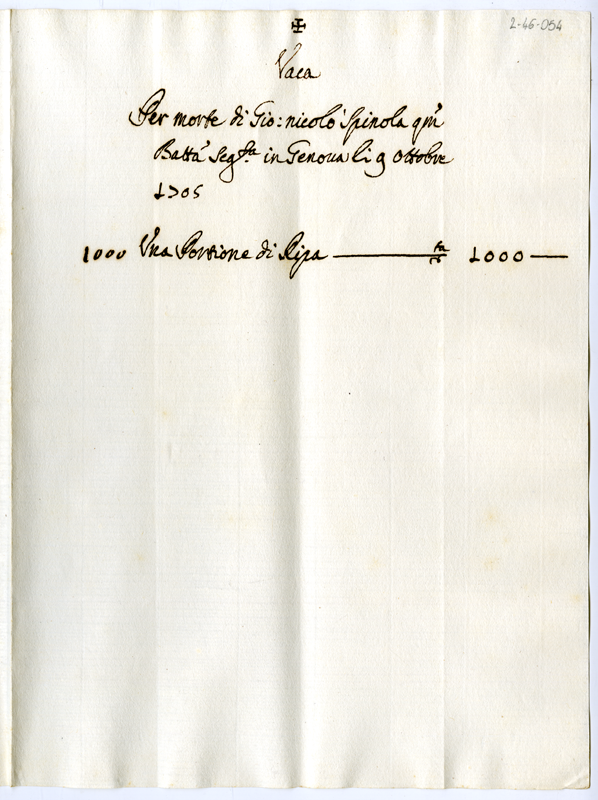 2-46-054
✠
Vaca
Per morte di Gio: nicolo Spinola qm
Batta seg.ta in Genova li 9 Ottobre
1705
1000 Una Portione di Ripa 1000